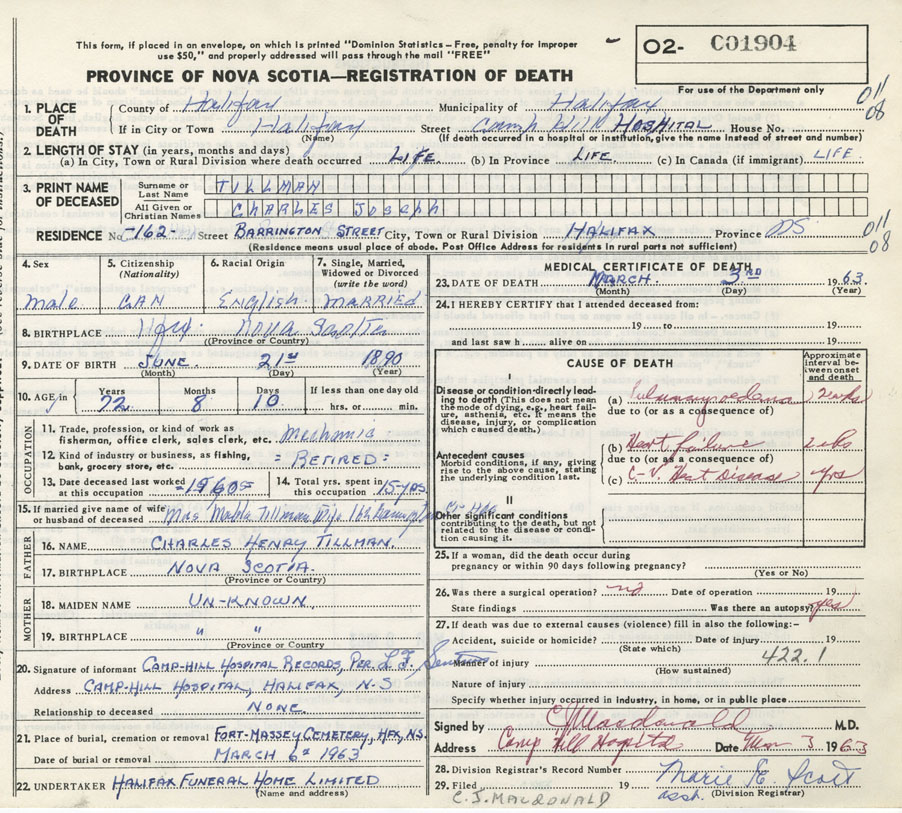 This form, if placed in an envelope, on which is printed "Dominion Statistics – Free, penalty for improper
use $50," and properly addressed will pass through the mail "FREE"
O2- C01904
For use of the Department only
PROVINCE OF NOVA SCOTIA—REGISTRATION OF DEATH
011
08
1. PLACE OF DEATH
County of Halifax Municipality of Halifax
If in City or Town Halifax Street Camp Hill HOSPITAL House No.
(Name) (If death occurred in a hospital or institution, give the name instead of street and number)
2. LENGTH OF STAY (in years, months and days)
(a) In City, Town or Rural Division where death occurred LIFE. (b) In Province LIFE (c) In Canada (if immigrant) LIFE
3. PRINT NAME OF DECEASED
Surname or Last Name TILLMAN
All Given or Christian Names CHARLES JOSEPH
RESIDENCE No. -162- Street BARRINGTON STREET City, Town or Rural Division HALIFAX Province NS
(Residence means usual place of abode. Post Office Address for residents in rural parts not sufficient)
011
08
4. Sex
male
5. Citizenship (Nationality)
CAN
6. Racial Origin
ENGLISH
7. Single, Married, Widowed or Divorced (write the word)
MARRIED
8. BIRTHPLACE Hfx. Nova Scotia
(Province or Country)
9. DATE OF BIRTH JUNE 21st 1890
(Month) (Day) (Year)
10. AGE in Years 72 Months 8 Days 10 If less than one day old hrs. or min.
OCCUPATION
11. Trade, profession, or kind of work as
fisherman, office clerk, sales clerk, etc. Mechanic
12. Kind of industry or business, as fishing,
bank, grocery store, etc. = RETIRED =
13. Date deceased last worked
at this occupation =1960=
14. Total yrs. spent in
this occupation 15-yrs.
15. If married give name of wife
or husband of deceased Mrs Mable Tillman Wife 162 Barrington St Hfx
FATHER
16. NAME CHARLES HENRY TILLMAN.
17. BIRTHPLACE NOVA SCOTIA.
(Province or Country)
MOTHER
18. MAIDEN NAME UN-KNOWN
19. BIRTHPLACE " "
(Province or Country)
20. Signature of informant CAMP-HILL HOSPITAL RECORDS, PER. L.F.
Address CAMP-HILL HOSPITAL, HALIFAX, N-S
Relationship to deceased NONE.
21. Place of burial, cremation or removal FORT-MASSEY CEMETERY, HFX, N.S.
Date of burial or removal MARCH 6th 1963
22. UNDERTAKER HALIFAX FUNERAL HOME LIMITED
(Name and address)
MEDICAL CERTIFICATE OF DEATH
23. DATE OF DEATH MARCH 3RD 1963
(Month) (Day) (Year)
24. I HEREBY CERTIFY that I attended deceased from:
19 to 19
and last saw h alive on 19
CAUSE OF DEATH
Approximate interval between onset and death
I
Disease or condition directly leading to death (This does not mean
the mode of dying, e.g., heart failure, asthenia, etc. It means the
disease, injury, or complication
which caused death.)
(a) Pulmonary oedema 2 wks
due to (or as a consequence of)
Antecedent causes
Morbid conditions, if any, giving
rise to the above cause, stating
the underlying condition last.
(b) Heart failure 2 wks
due to (or as a consequence of)
(c) C-V. Heart Disease yrs
II
Other significant conditions
contributing to the death, but not
related to the disease or condition causing it.
25. If a woman, did the death occur during
pregnancy or within 90 days following pregnancy?
(Yes or No)
26. Was there a surgical operation? no Date of operation 19
State findings Was there an autopsy? yes
27. If death was due to external causes (violence) fill in also the following:–
Accident, suicide or homicide? Date of injury 19
(State which)
Manner of injury 422.1
(How sustained)
Nature of injury
Specify whether injury occurred in industry, in home, or in public place
Signed by CJ Macdonald M.D.
Address Camp Hill Hospital Date Mar 3 1963
28. Division Registrar's Record Number
29. Filed 19 Marie E. Scott
asst. (Division Registrar)
C.J. MACDONALD